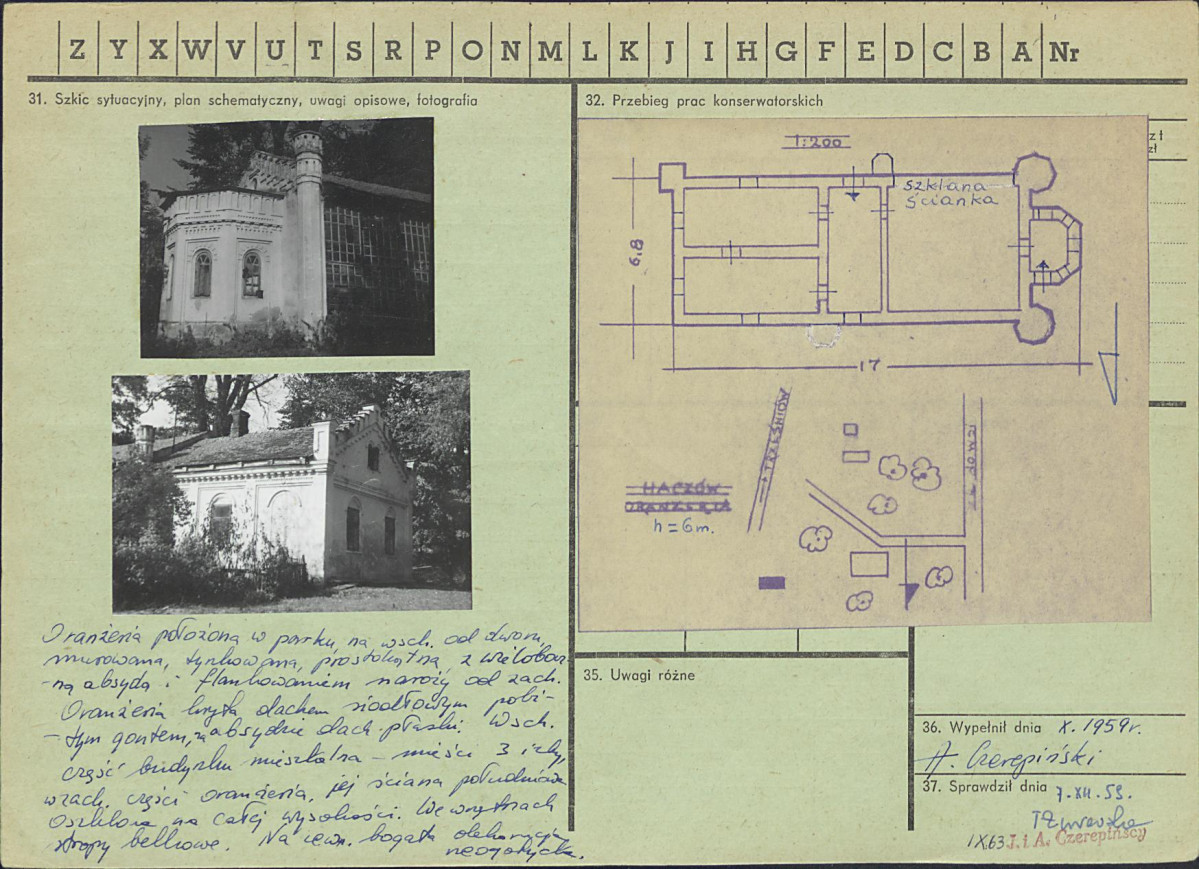 Z Y X W V U T S R P O N M L K J I H G F E D C B A Nr
31. Szkic sytuacyjny, plan schematyczny, uwagi opisowe, fotografia
32. Przebieg prac konserwatorskich
1:200
szklana
ścianka
6,8
17
TRZEŚNIÓW
HACZÓW
ORANŻERIA
h = 6 m.
Oranżeria położona w parku, na wsch. od dworu,
murowana, tynkowana, prostokątna, z wielobocz-
-ną absydą i flankowaniem naroży od zach.
Oranżeria kryta dachem siodłowym pobi-
-tym gontem, na absydzie dach płaski. Wsch.
część budynku mieszkalna - mieści 3 izby,
w zach. części oranżeria, jej ściana południowa
oszklona na całej wysokości. We wnętrzach
stropy belkowe. Na zewn. bogata dekoracja
neogotycka.
35. Uwagi różne
36. Wypełnił dnia X. 1959 r.
A. Czerepiński
37. Sprawdził dnia 7.XII.59.
IX63 J. i A. Czerepińscy